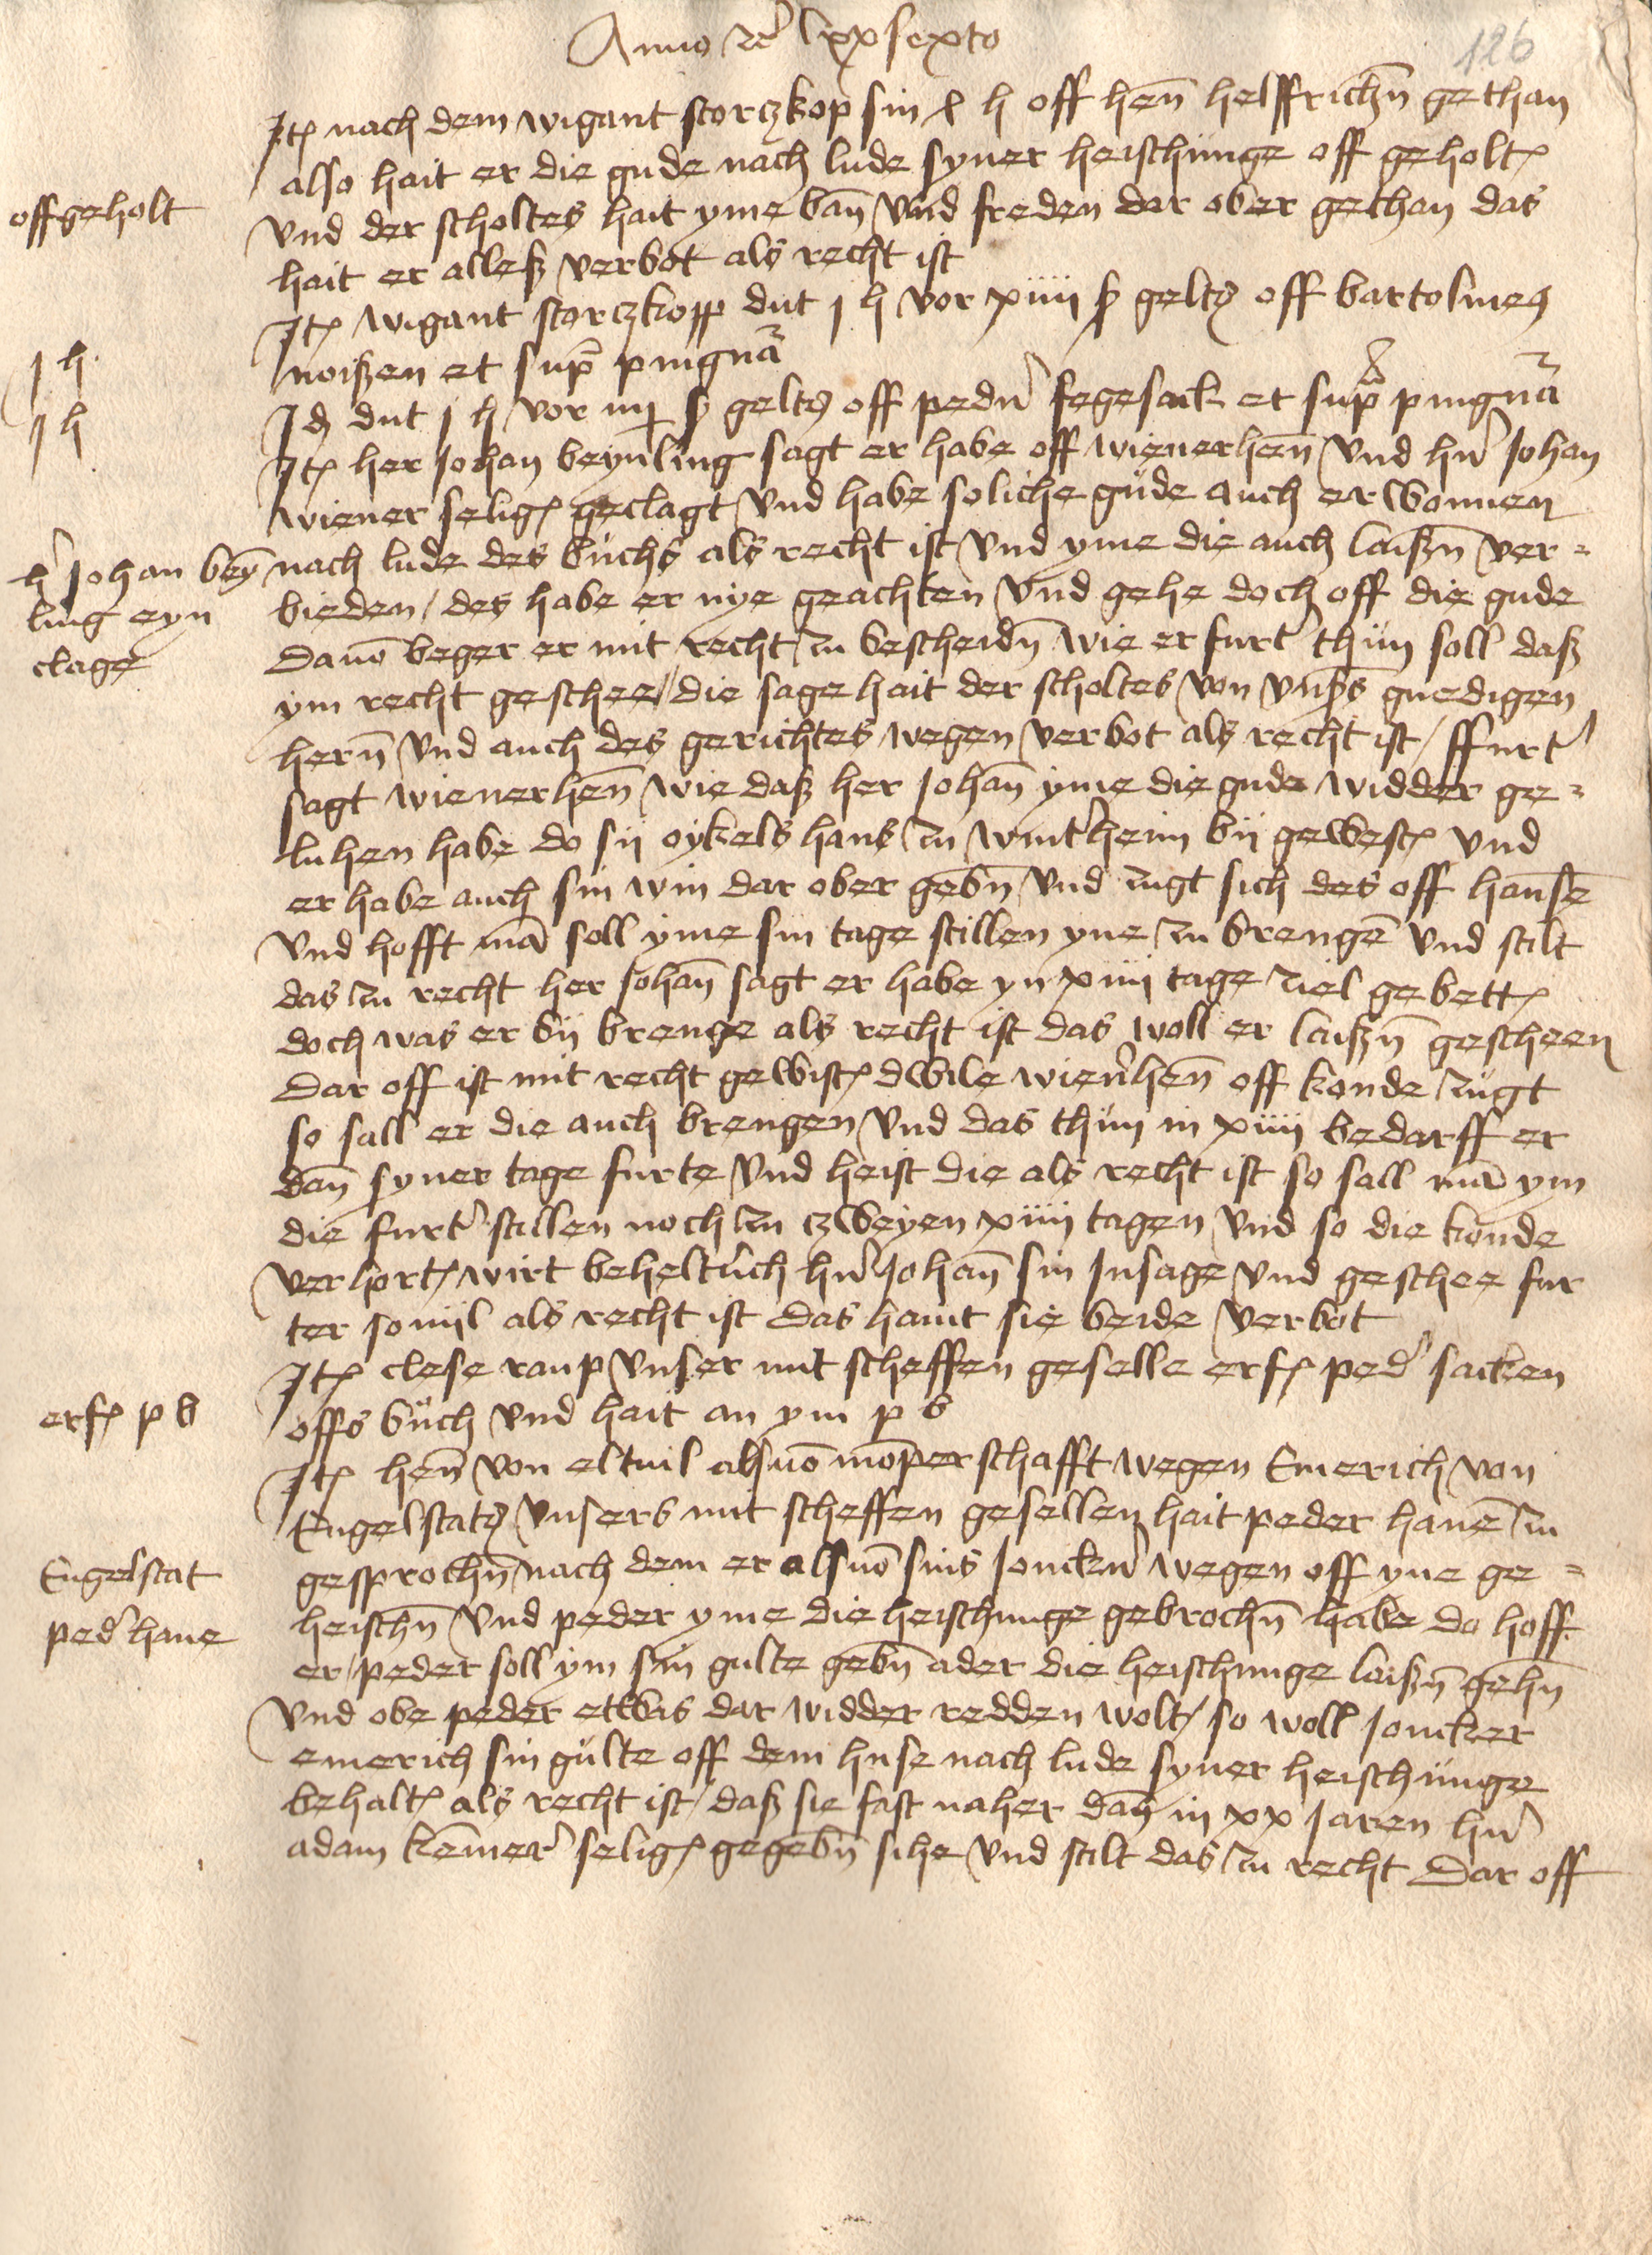 Anno zc lxx sexto
126
Jt(em) nach dem wigant storczkop sin x h off hen̅ helffrichn̅ gethan
also hait er die gude nach lude syner heischunge off geholt(en)
offgeholt
vnd der scholtes hait yme ban̅ vnd freden dar ober gethan das
hait er alleß verbot als recht ist
Jt(em) wigant storczkopp dut j h vor xiiij ß gelts off bartolmes
j h
noißen et sup(ra) pingna̅
j h
Jd(em) dut j h vor iiij ß gelts off pedn̓ fegesack et sup(ra) pingna̅
Jt(em) her Johan beynling sagt er habe off wienerhen̅ vnd hn̓ Johan
wiener selig(en) geclagt vnd habe soliche gude auch erwonnen
h̓ Johan bey̅
nach lude des buchs als recht ist vnd yme die auch laißn̅ ver=
ling eyn
bieden / des habe er nye geachten vnd gehe doch off die gude
clage
Dauo̅ beger er mit recht zu bescheidn̅ wie er furt̓ thun soll daß
ym recht geschee / die sage hait der scholtes von vnß(er)s gnedigen
hern̅ vnd auch des gerichtes wegen verbot als recht ist / ffurt̓
sagt wienerhen̅ wie daß her Johan̅ yme die gude widder ge=
luhen habe do sij oykels hans zu wint̓heim bij gewest(en) vnd
er habe auch sin win dar ober gebn̅ vnd zugt sich des off hanse̅
vnd hofft ma̅ soll yme sin tage stillen yne zu brenge̅ vnd stilt
das zu recht her Johan̅ sagt er habe yn xiiij tage ziel gebett(en)
doch was er bij brenge als recht ist das woll er laißn̅ gescheen
Dar off ist mit recht gewist(en) dwile wien̓hen̅ off konde zugt
so sall er die auch brengen vnd das thun in xiiij bedarff er
dan̅ syner tage furte vnd heist die als recht ist so sall ma̅ ym
die furt̓ stillen noch zu czweyen xiiij tagen vnd so die konde
verhort(en) wirt beheltlich hn̓ Johan̅ sin Jnsage vnd geschee fur
ter so vijl als recht ist das haint sie beide verbot
Jt(em) clese raup vnser mit scheffen geselle erf(olgt) ped̓ sacken
erf(olgt) p b
offs buch vnd hait an ym p b
Jt(em) hen̅ von eltuil als vo̅ mo̅perschafft wegen Emerich von
Engelstats vnsers mit scheffen gesellen hait peder hane̅ zu
gesprochn̅ nach dem er als vo̅ sins Jonckn̓ wegen off yne ge=
Engelstat
heischn̅ vnd peder yme die heischunge gebrochn̅ habe do hoff
ped̓ hane
er / peder soll ym sin gulte gebn̅ ader die heischunge laißn̅ gehn̅
vnd obe peder etwas dar widder redden wolt / so woll Joncker
emerich sin gulte off dem huse nach lude syner heischunge
behalt(en) als recht ist / daß sie fast naher dan̅ in xx Jaren hn̓
adam ke̅mer̓ selig(en) gegebn̅ sihe vnd stilt das zu recht Dar off